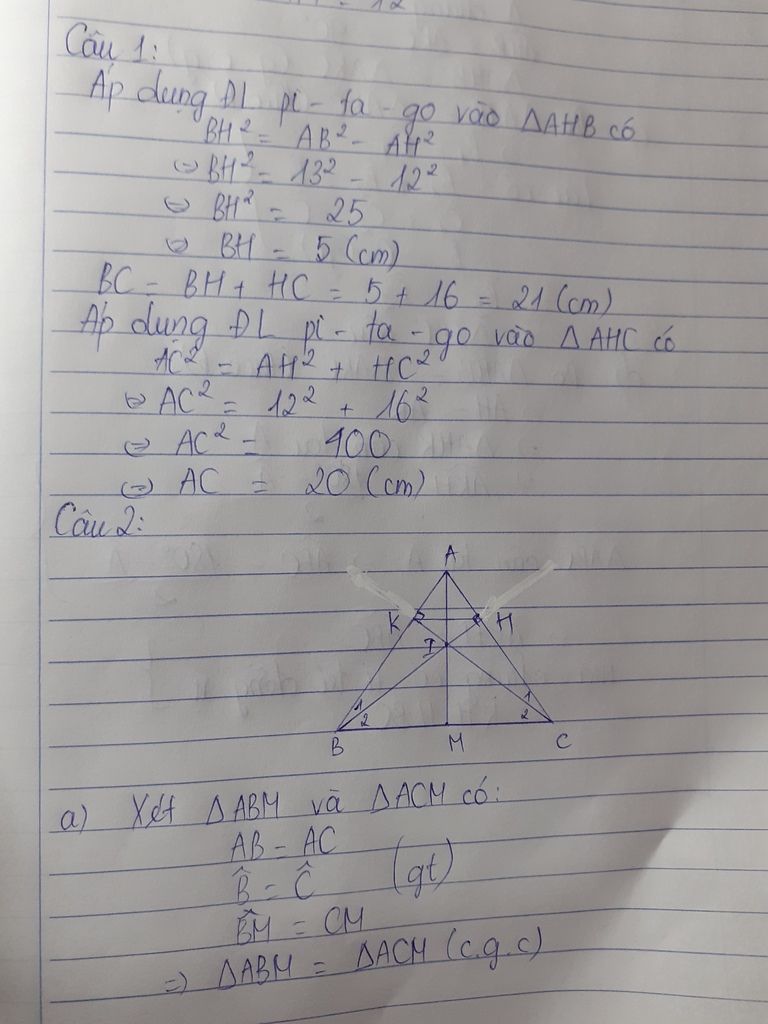 12
Câu 1:
Áp dụng ĐL pi - ta - go vào ΔAHB có
BH² = AB² - AH²
⇔ BH² = 13² - 12²
⇔ BH² = 25
⇔ BH = 5 (cm)
BC = BH + HC = 5 + 16 = 21 (cm)
Áp dụng ĐL pi - ta - go vào ΔAHC có
AC² = AH² + HC²
⇔ AC² = 12² + 16²
⇔ AC² = 400
⇔ AC = 20 (cm)
Câu 2:
A
K H
I
1 2 1 2
B M C
a) Xét ΔABM và ΔACM có:
AB = AC
B̂ = Ĉ (gt)
BM = CM
=> ΔABM = ΔACM (c.g.c)